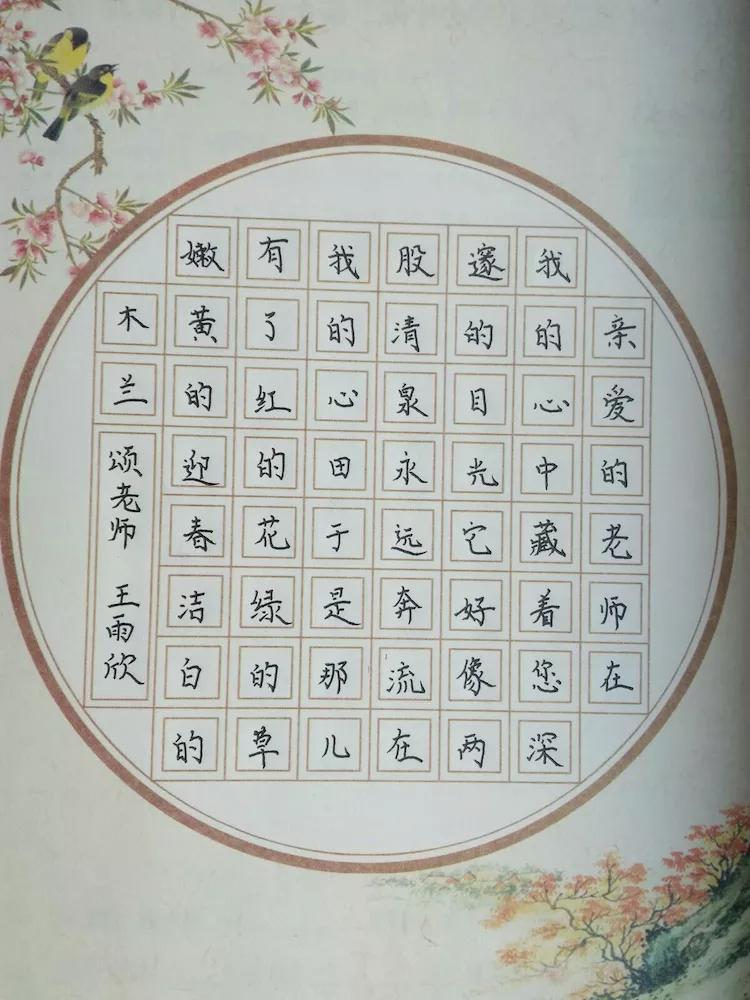 亲爱的老师在
我的心中藏着您深
邃的目光它好像两
股清泉永远奔流在
我的心田于是那儿
有了红的花绿的草
嫩黄的迎春洁白的
木兰
颂老师 王雨欣